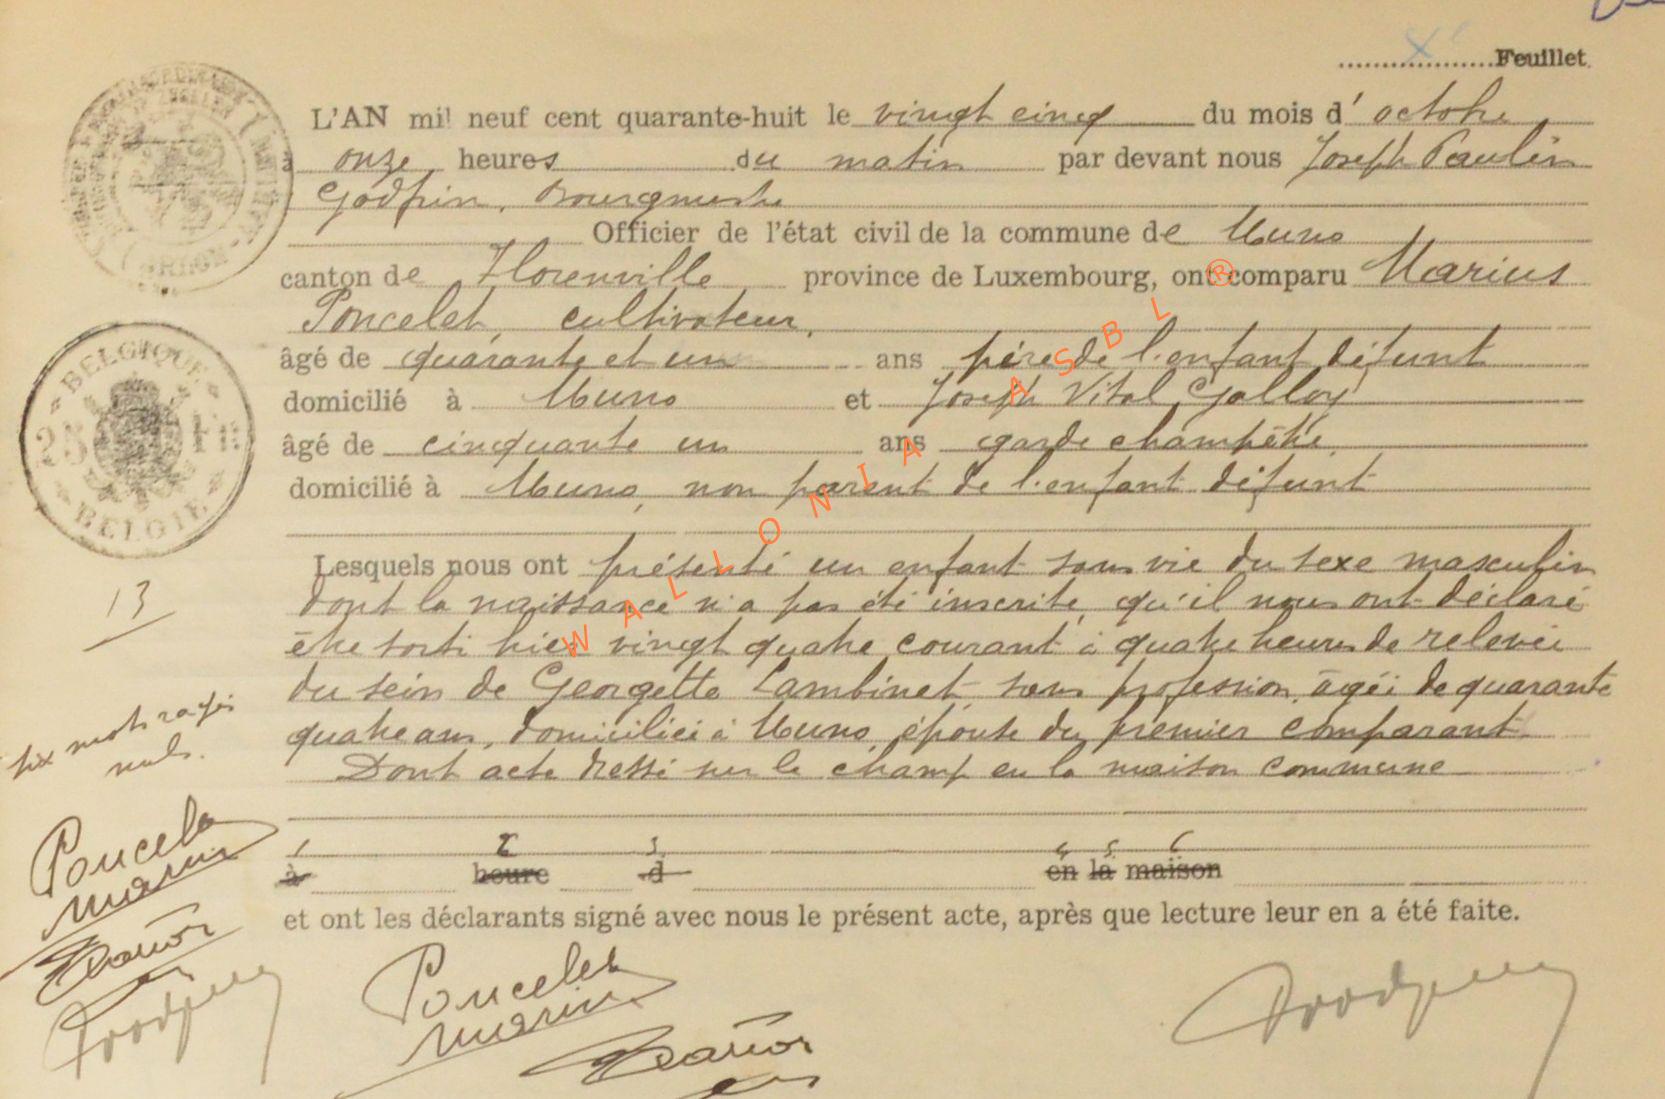 Feuillet
L'AN mil neuf cent quarante-huit le vingt cinq du mois d'octobre
à onze heures du matin par devant nous Joseph Paulin
Godfrin, Bourgmestre
Officier de l'état civil de la commune de Muno
canton de Florenville province de Luxembourg, ont comparu Marius
Poncelet, cultivateur,
âgé de quarante et un ans père de l'enfant défunt
domicilié à Muno et Joseph Vital
âgé de cinquante un ans garde champêtre
domicilié à Muno, non parent de l'enfant défunt
Lesquels nous ont présenté un enfant sans vie du sexe masculin
dont la naissance n'a pas été inscrite, qu'il nous ont déclaré
être sorti hier vingt quatre courant à quatre heures de relevée
du sein de Georgette Lambinet, sans profession, âgée de quarante
quatre ans, domiciliée à Muno, épouse du premier comparant.
Dont acte dressé sur le champ en la maison commune
1 2 3 4 5 6
à heure d en la maison
et ont les déclarants signé avec nous le présent acte, après que lecture leur en a été faite.
BELGIQUE
BELGIE
ARLON
13
six mots rayés
nuls.
Poncelet
Marius
Poncelet
Marius
WALLONIA ASBL ®